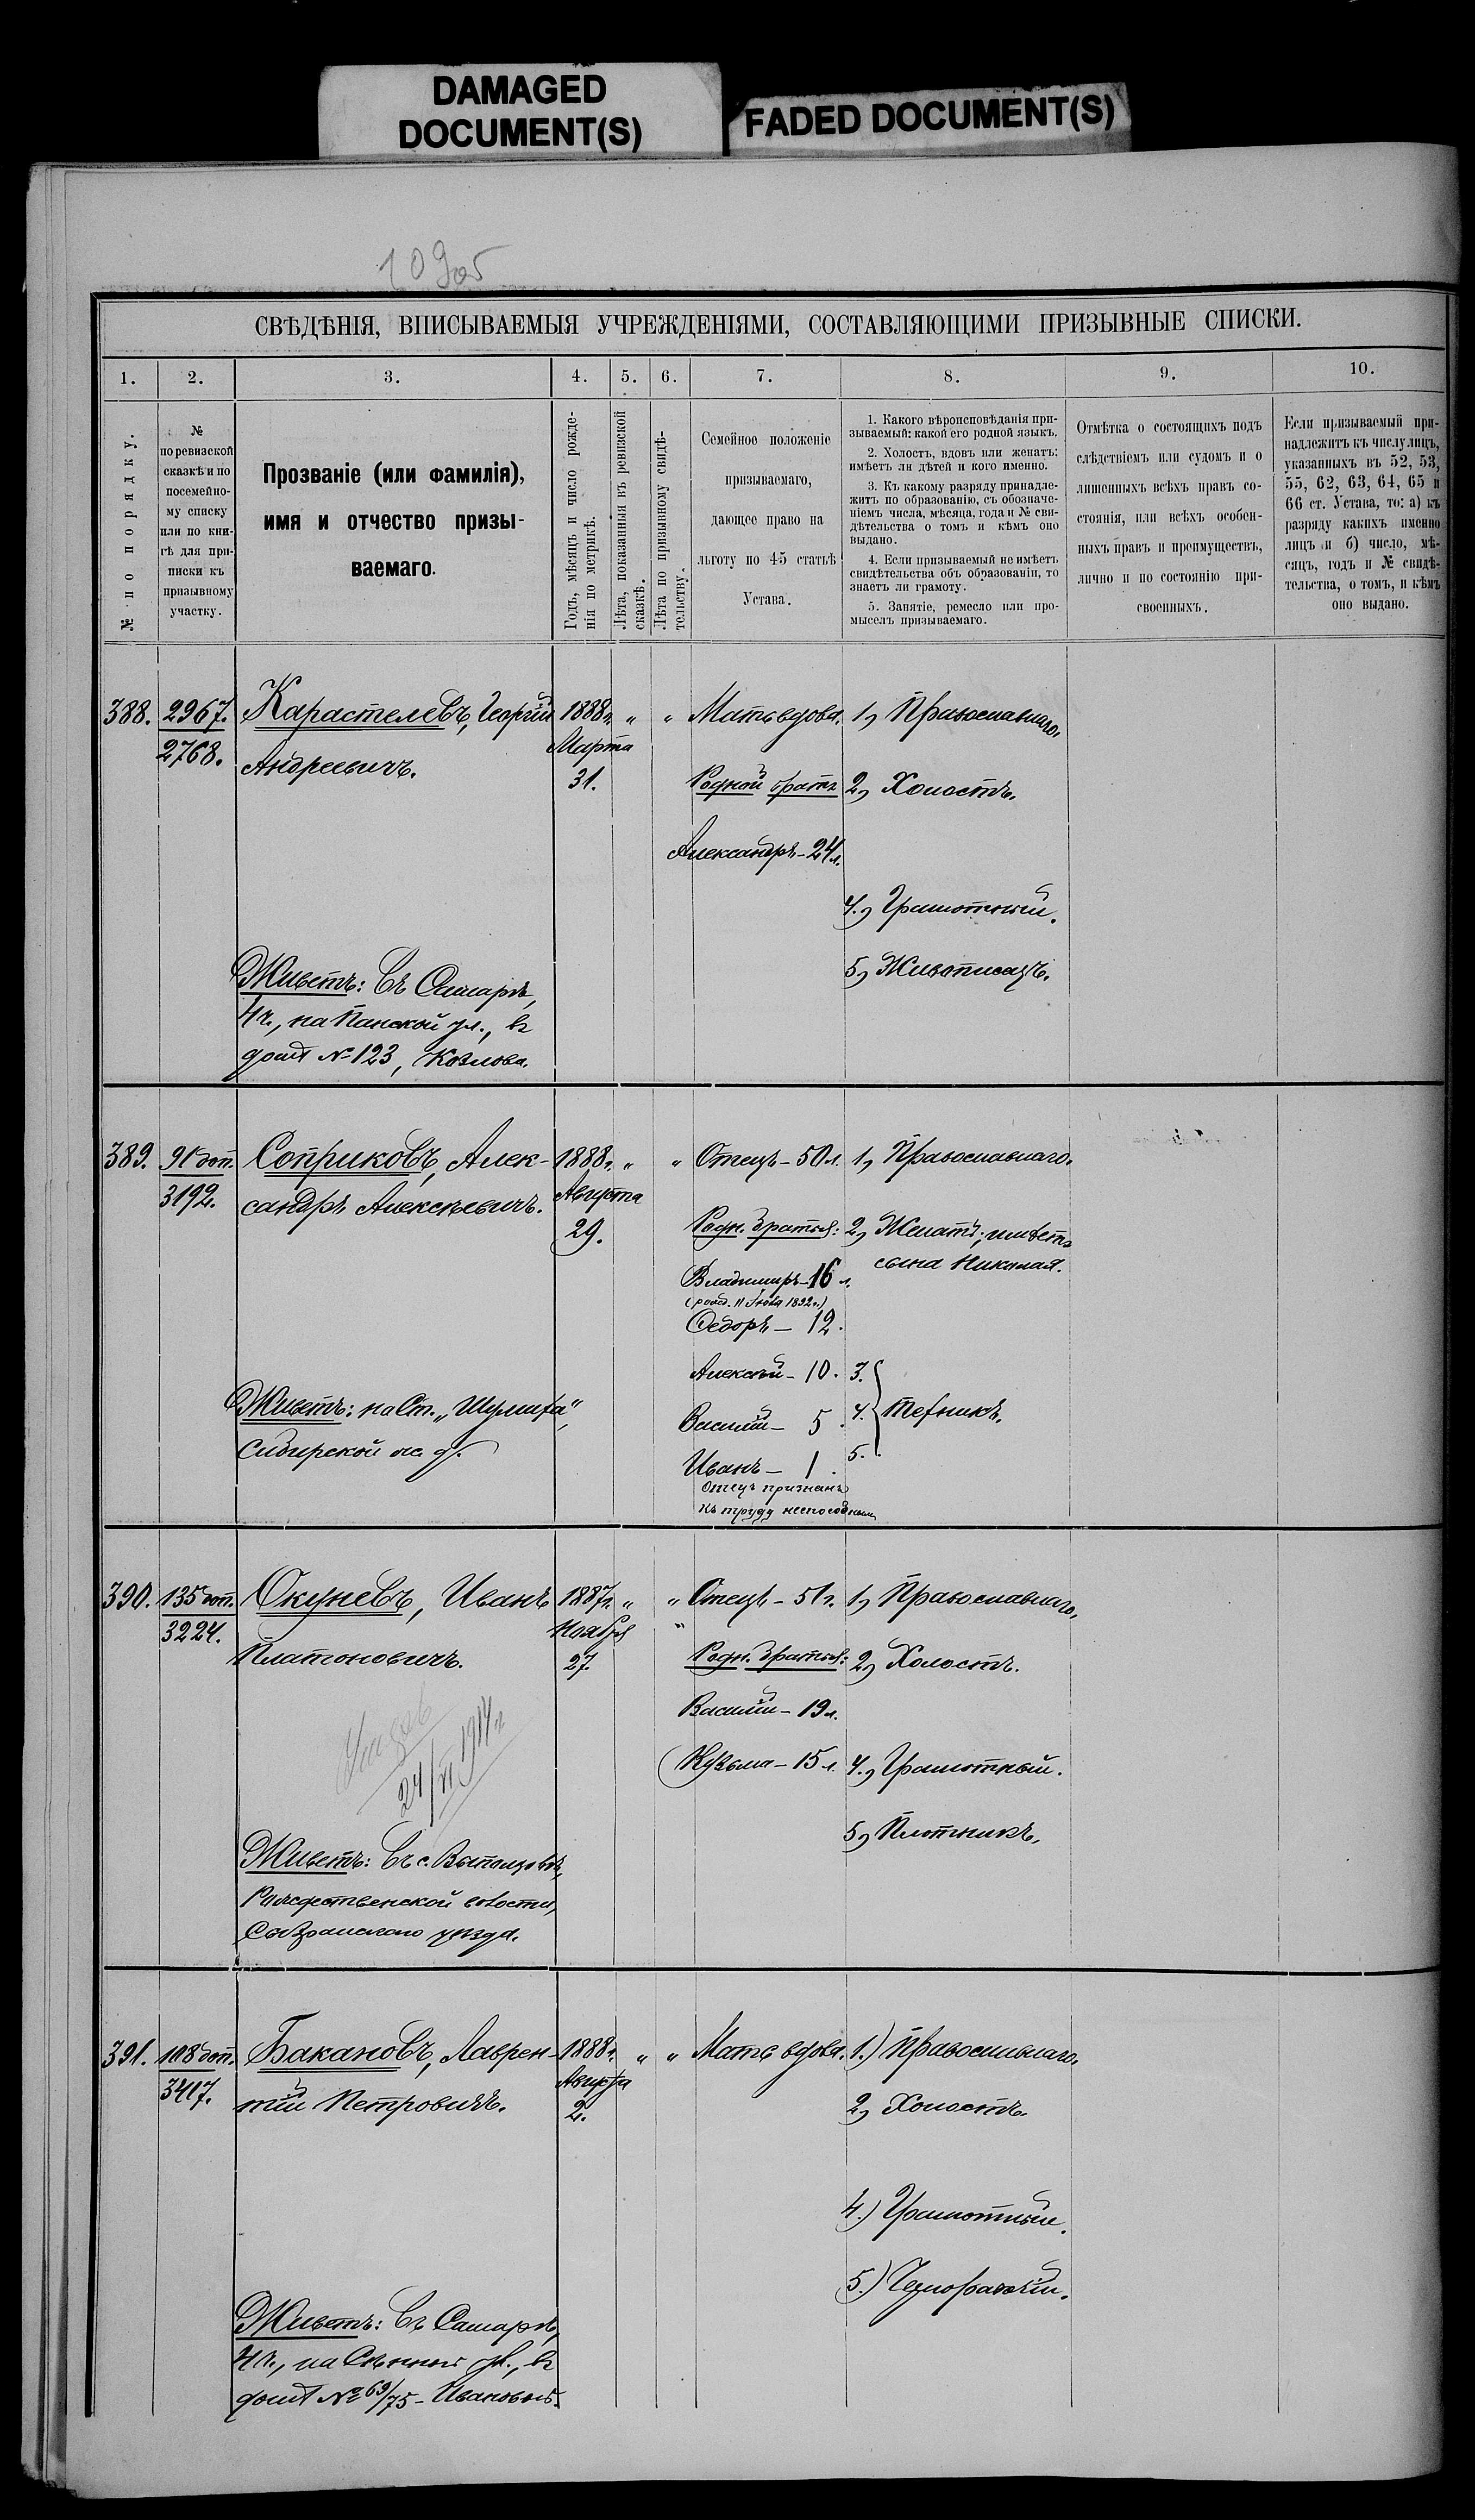 DAMAGED
DOCUMENT(S)
FADED DOCUMENT(S)
109об
СВѢДѢНІЯ, ВПИСЫВАЕМЫЯ УЧРЕЖДЕНІЯМИ, СОСТАВЛЯЮЩИМИ ПРИЗЫВНЫЕ СПИСКИ.
1. 2. 3. 4. 5. 6. 7. 8. 9. 10.
№ по порядку.
№
по ревизской
сказкѣ и по
посемейно-
му списку
или по кни-
гѣ для при-
писки къ
призывному
участку.
Прозваніе (или фамилія),
имя и отчество призы-
ваемаго.
Годъ, мѣсяцъ и число рожде-
нія по метрикѣ.
Лѣта, показанныя въ ревизской
сказкѣ.
Лѣта по призывному свидѣ-
тельству.
Семейное положеніе
призываемаго,
дающее право на
льготу по 45 статьѣ
Устава.
1. Какого вѣроисповѣданія при-
зываемый: какой его родной языкъ.
2. Холостъ, вдовъ или женатъ:
имѣетъ ли дѣтей и кого именно.
3. Къ какому разряду принадле-
житъ по образованію, съ обозначе-
ніемъ числа, мѣсяца, года и № сви-
дѣтельства о томъ и кѣмъ оно
выдано.
4. Если призываемый не имѣетъ
свидѣтельства объ образованіи, то
знаетъ ли грамоту.
5. Занятіе, ремесло или про-
мыселъ призываемаго.
Отмѣтка о состоящихъ подъ
слѣдствіемъ или судомъ и о
лишенныхъ всѣхъ правъ со-
стоянія, или всѣхъ особен-
ныхъ правъ и преимуществъ,
лично и по состоянію при-
своенныхъ.
Если призываемый при-
надлежитъ къ числу лицъ,
указанныхъ въ 52, 53,
55, 62, 63, 64, 65 и
66 ст. Устава, то: а) къ
разряду какихъ именно
лицъ и б) число, мѣ-
сяцъ, годъ и № свидѣ-
тельства, о томъ, и кѣмъ
оно выдано.
388. 2967. Карастелевъ, Георгій 1888г. " " Мать вдова. 1) Православнаго.
2768. Андреевичъ. Марта
31. Родной братъ 2) Холостъ.
Александръ – 24 л.
4) Грамотный.
5) Живописецъ.
Живетъ: Въ Самарѣ,
4 ч., на Панской ул., въ
домѣ № 123, Козлова.
389. 91 доп. Соприковъ, Алек- 1888г. " " Отецъ – 50 л. 1) Православнаго.
3192. сандръ Алексѣевичъ. Августа
29. Родн. братья: 2) Женатъ; имѣетъ
сына Николая.
Владимиръ – 16 л.
(рожд. 11 1892 г.)
Ѳедоръ – 12.
Алексѣй – 10. 3.
Василій – 5. 4. Техникъ.
Иванъ – 1. 5.
Отецъ признанъ
къ труду неспособнымъ
Живетъ: на Ст. „Шумиха",
Сибирской ж. д.
390. 135 доп. Окуневъ, Иванъ 1887г. " " Отецъ – 51 г. 1) Православнаго.
3224. Платоновичъ. Ноября
27. Родн. братья: 2) Холостъ.
Василій – 19 л.
Кузьма – 15 л. 4) Грамотный.
5) Плотникъ.
24/VI 1914 г
Живетъ: Въ с. Выползовѣ,
Рождественской волости,
Сызранскаго уѣзда.
391. 108 доп. Бакановъ, Лаврен- 1888г. " " Мать вдова. 1.) Православнаго.
3417. тій Петровичъ. Августа
2. 2) Холостъ.
4.) Грамотный.
5.) Чернорабочій.
Живетъ: Въ Самарѣ,
4 ч., на Сѣнной ул., въ
домѣ № 69/75 –